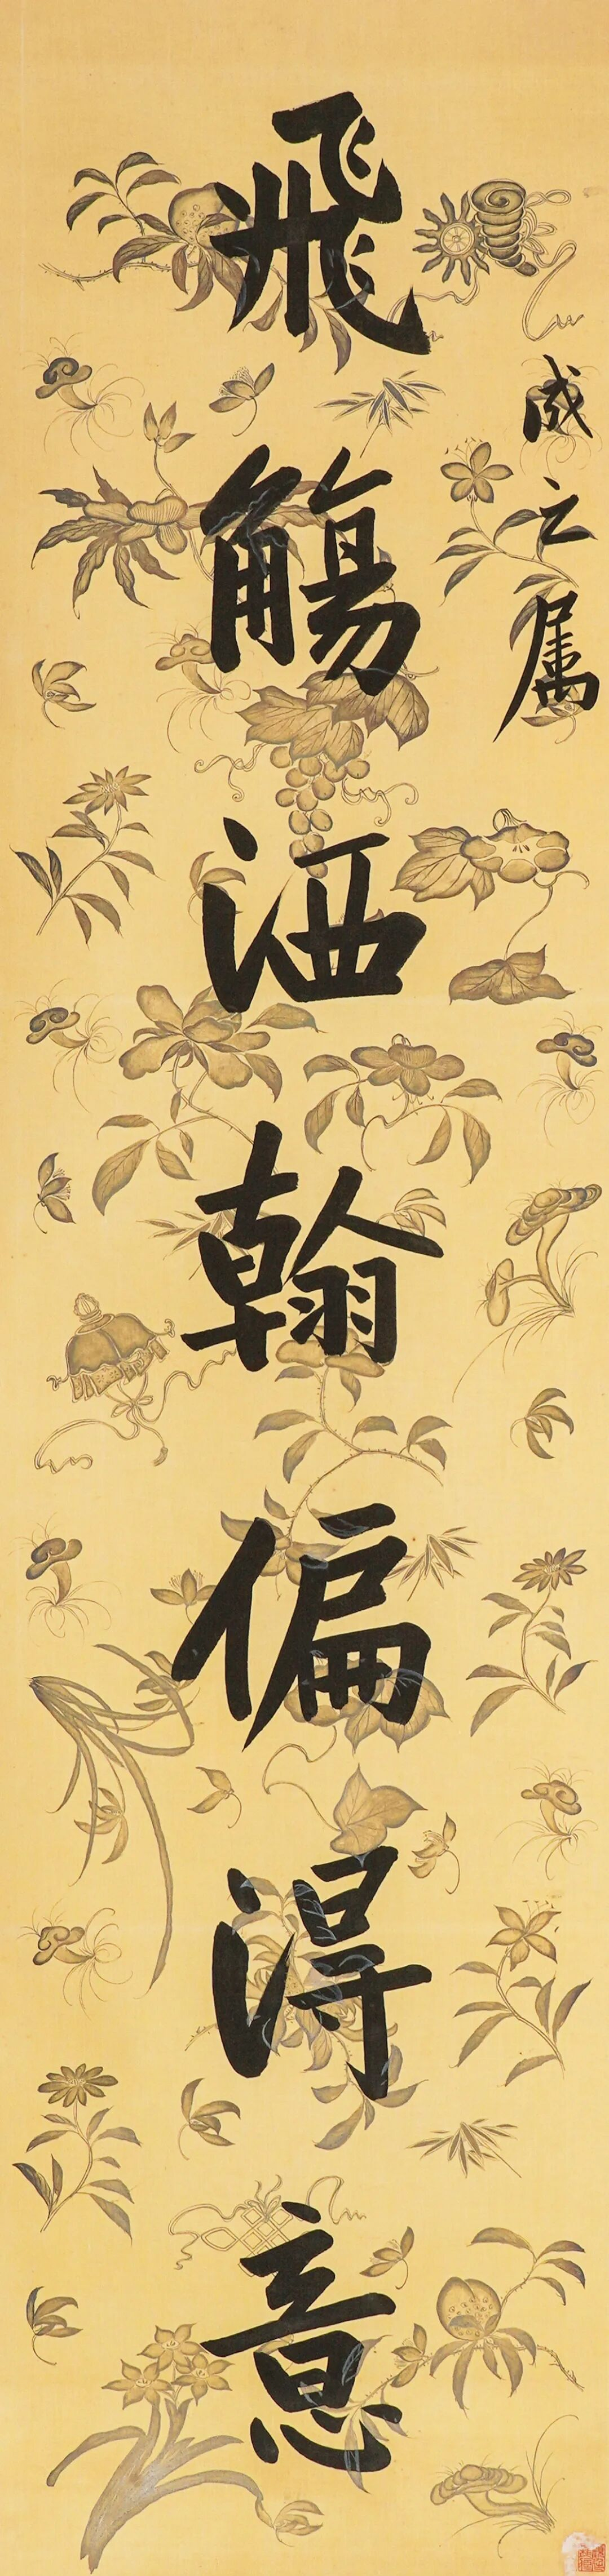 成之属
飛觴洒翰偏得意